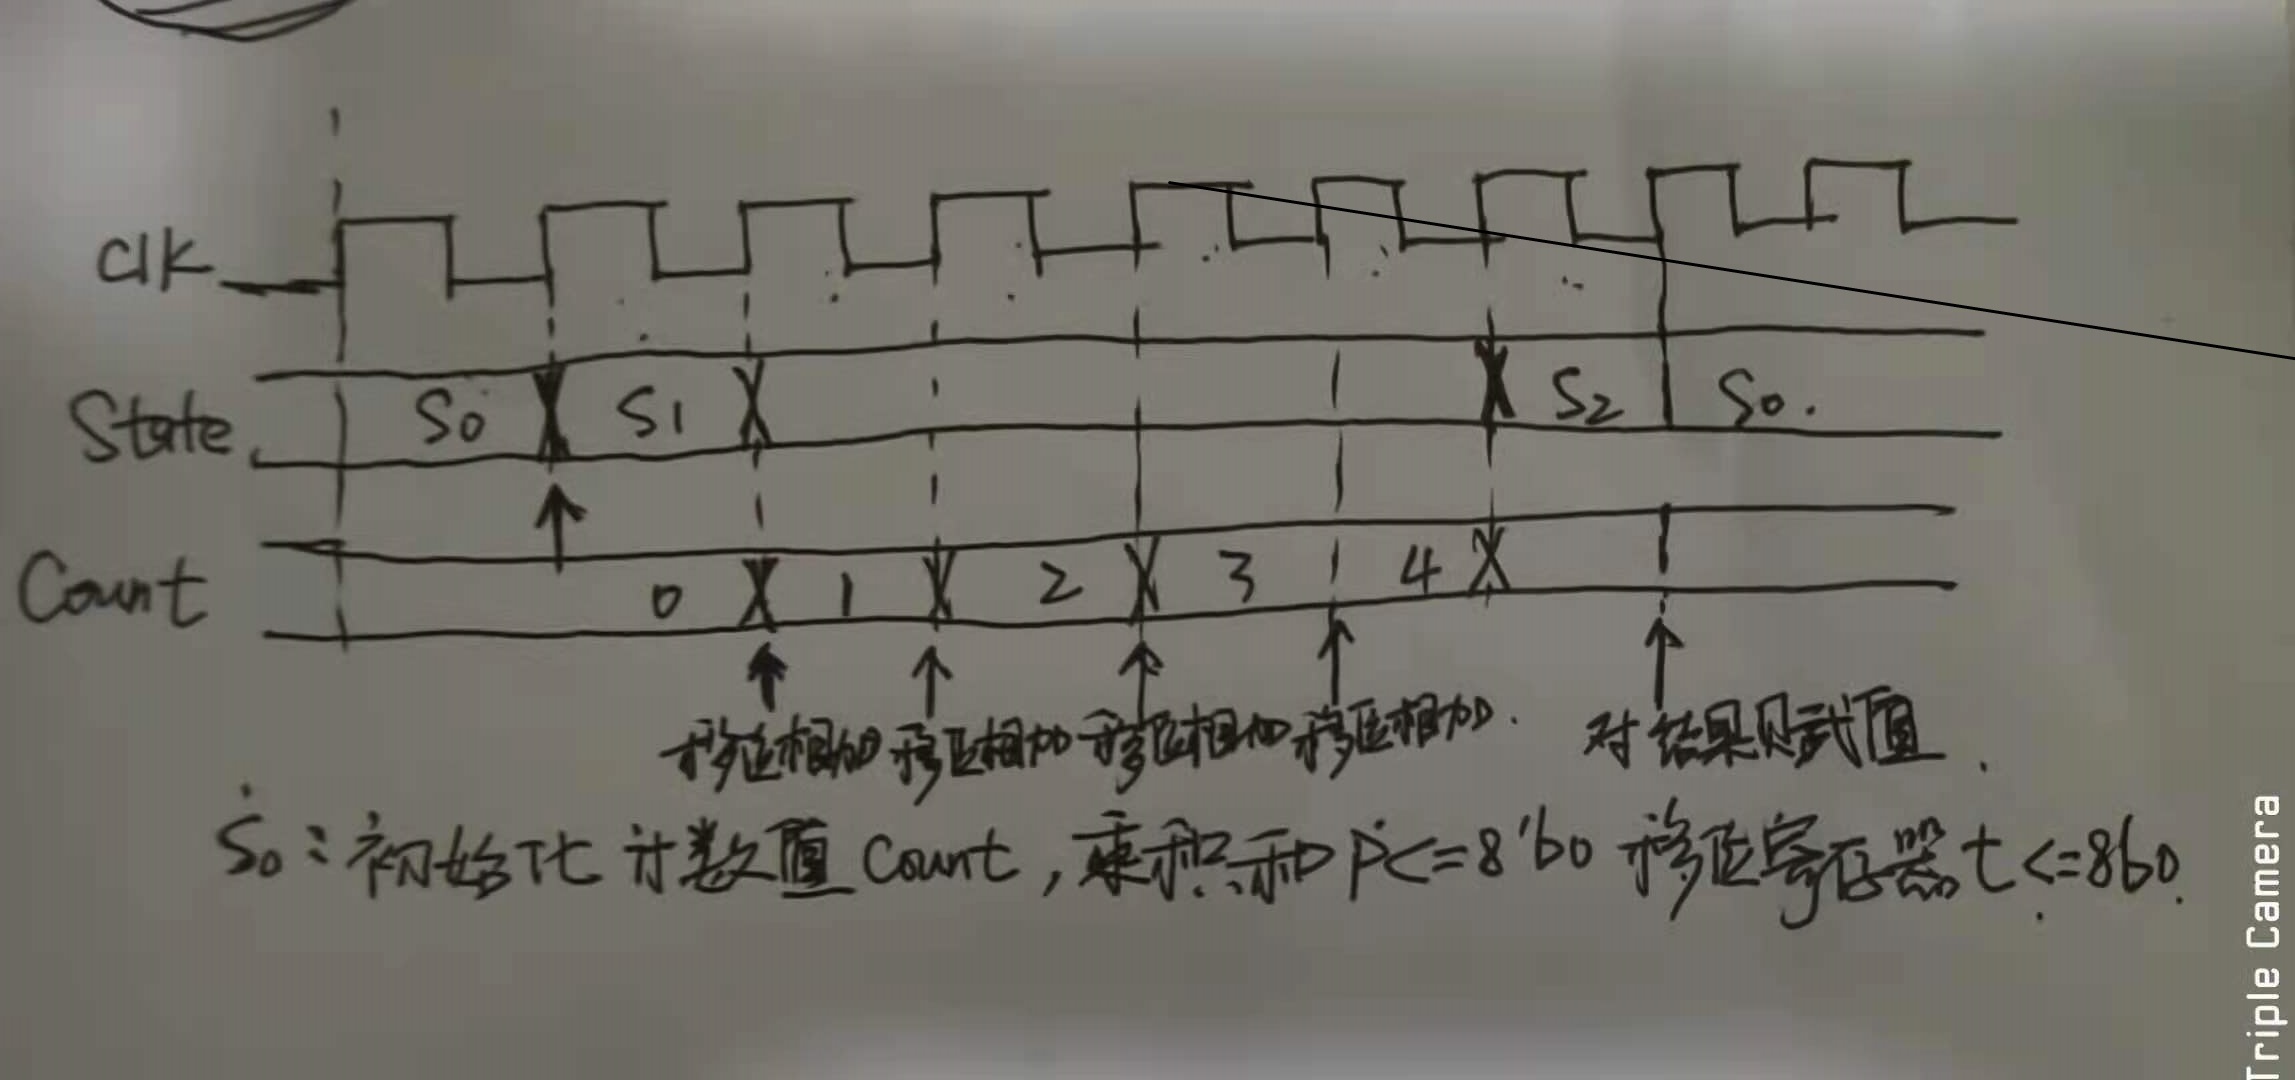 clk
State S0 S1 S2 S0.
Count 0 1 2 3 4
移位相加 移位相加 移位相加 移位相加. 对结果赋值.
S0: 初始化计数值 Count, 乘积和 P<=8'b0 移位寄存器 t<=8b0.
Triple Camera